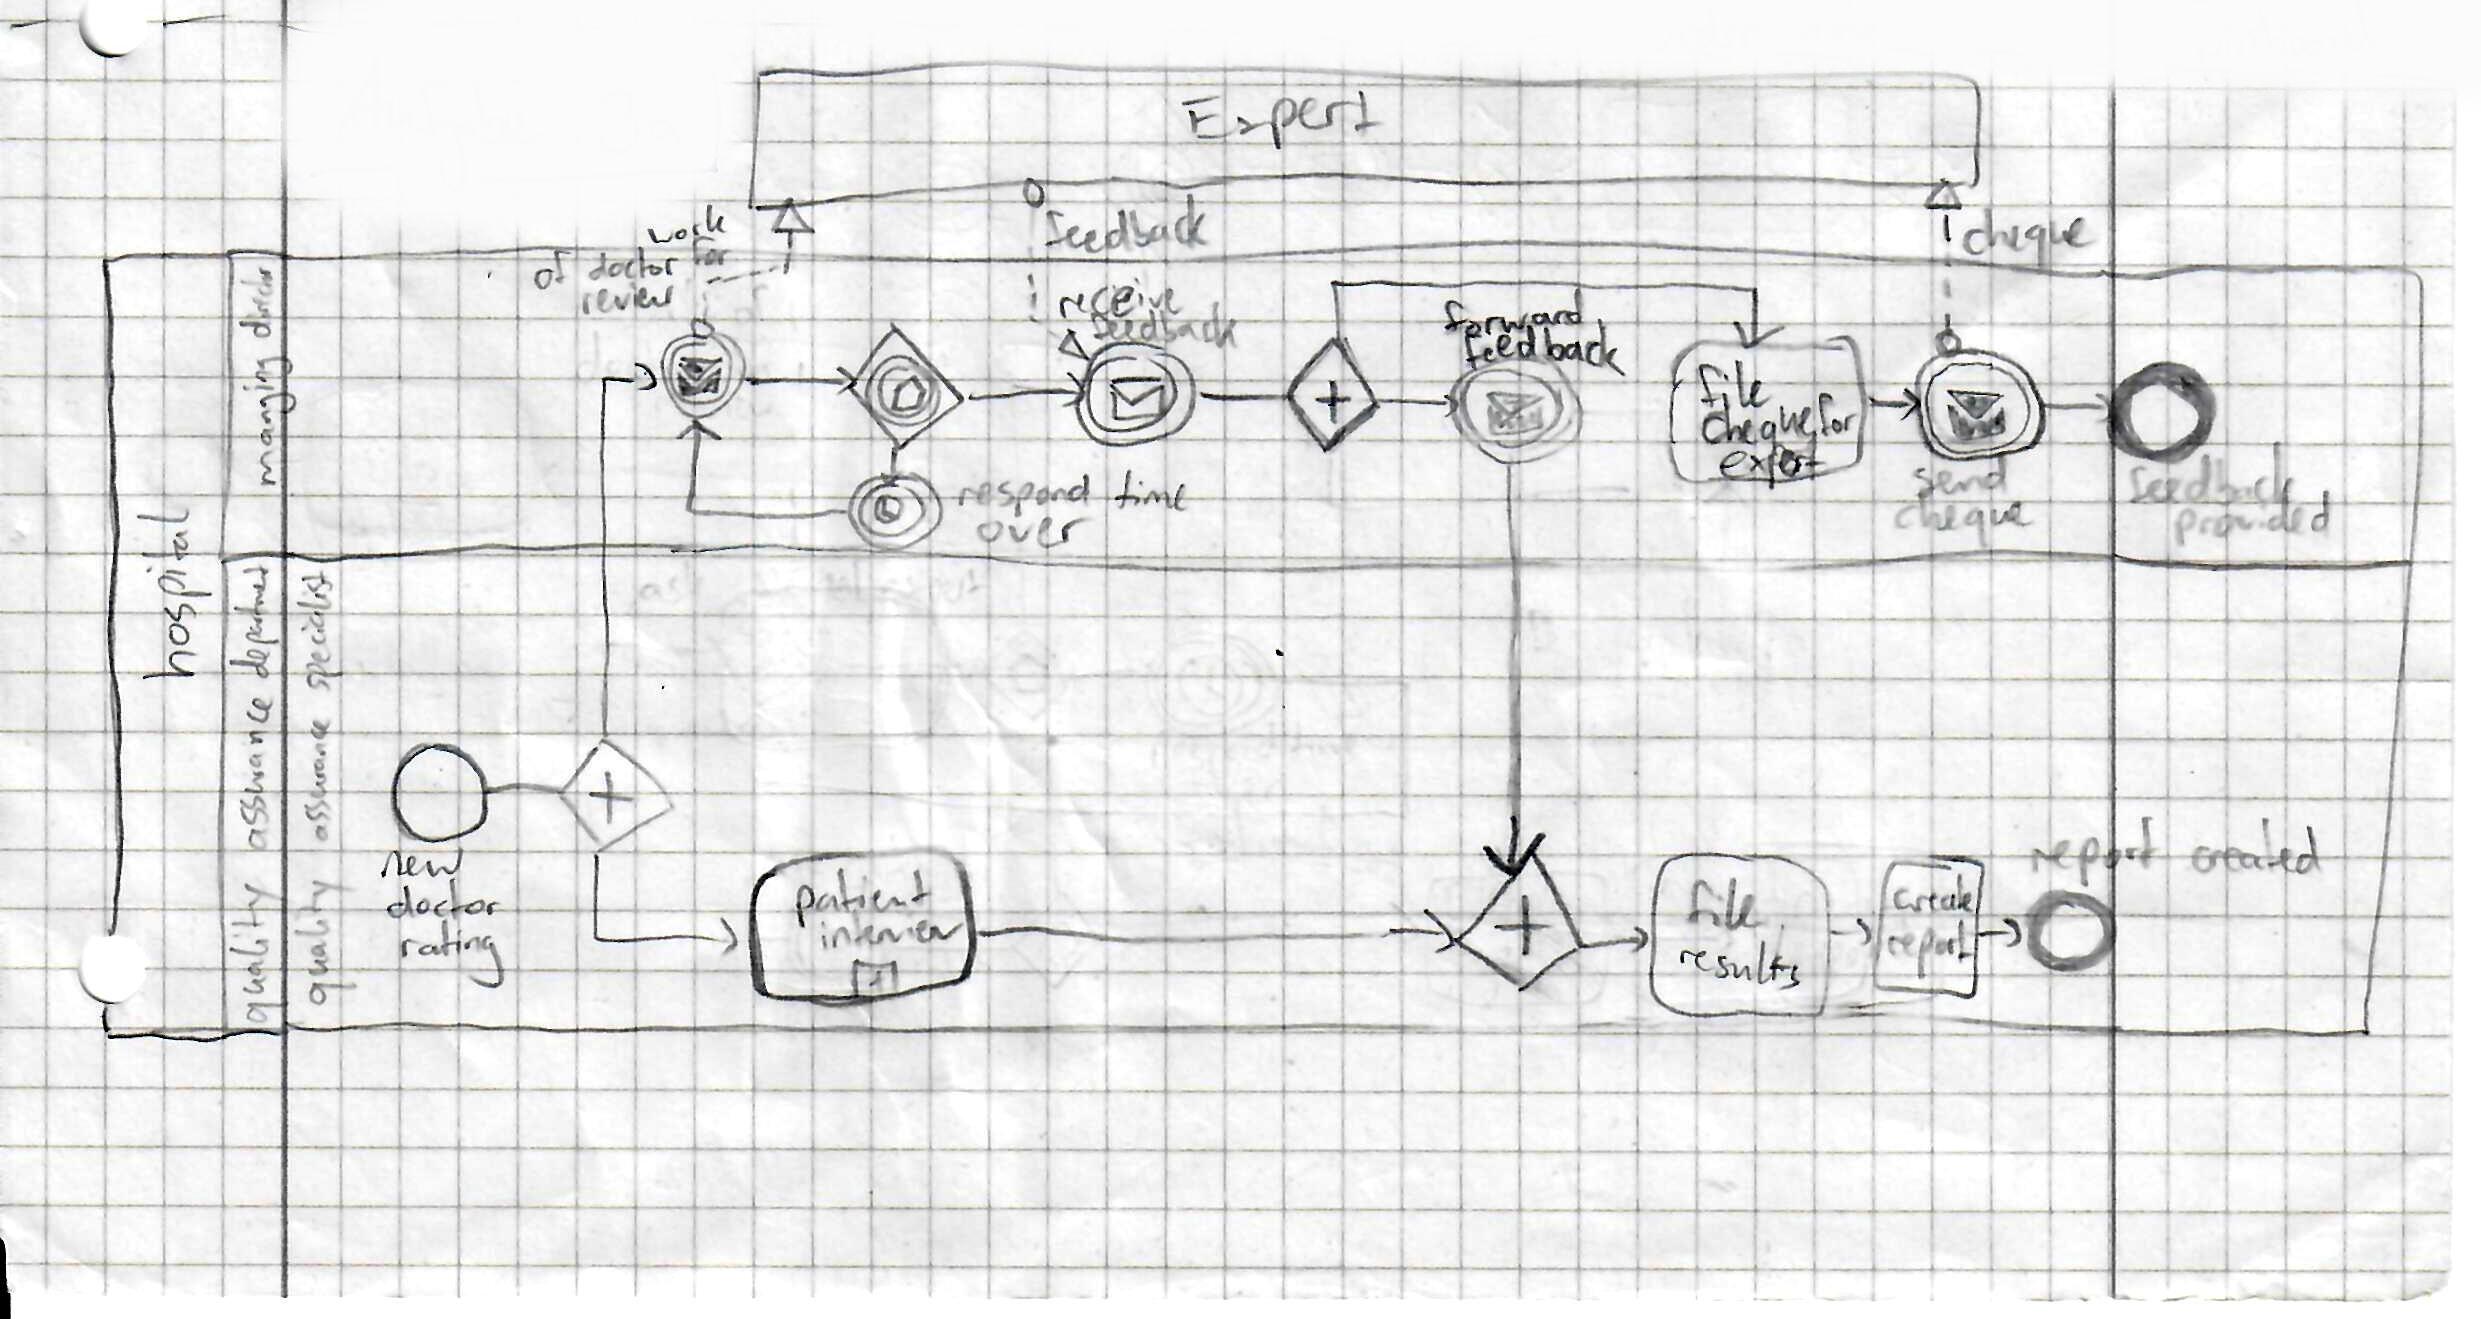 Expert
work
of doctor for
review
feedback
cheque
hospital
managing director
receive
feedback
forward
feedback
file
cheque for
expert
respond time
over
send
cheque
feedback
provided
quality assurance department
quality assurance specialist
new
doctor
rating
patient
interview
file
results
create
report
report created